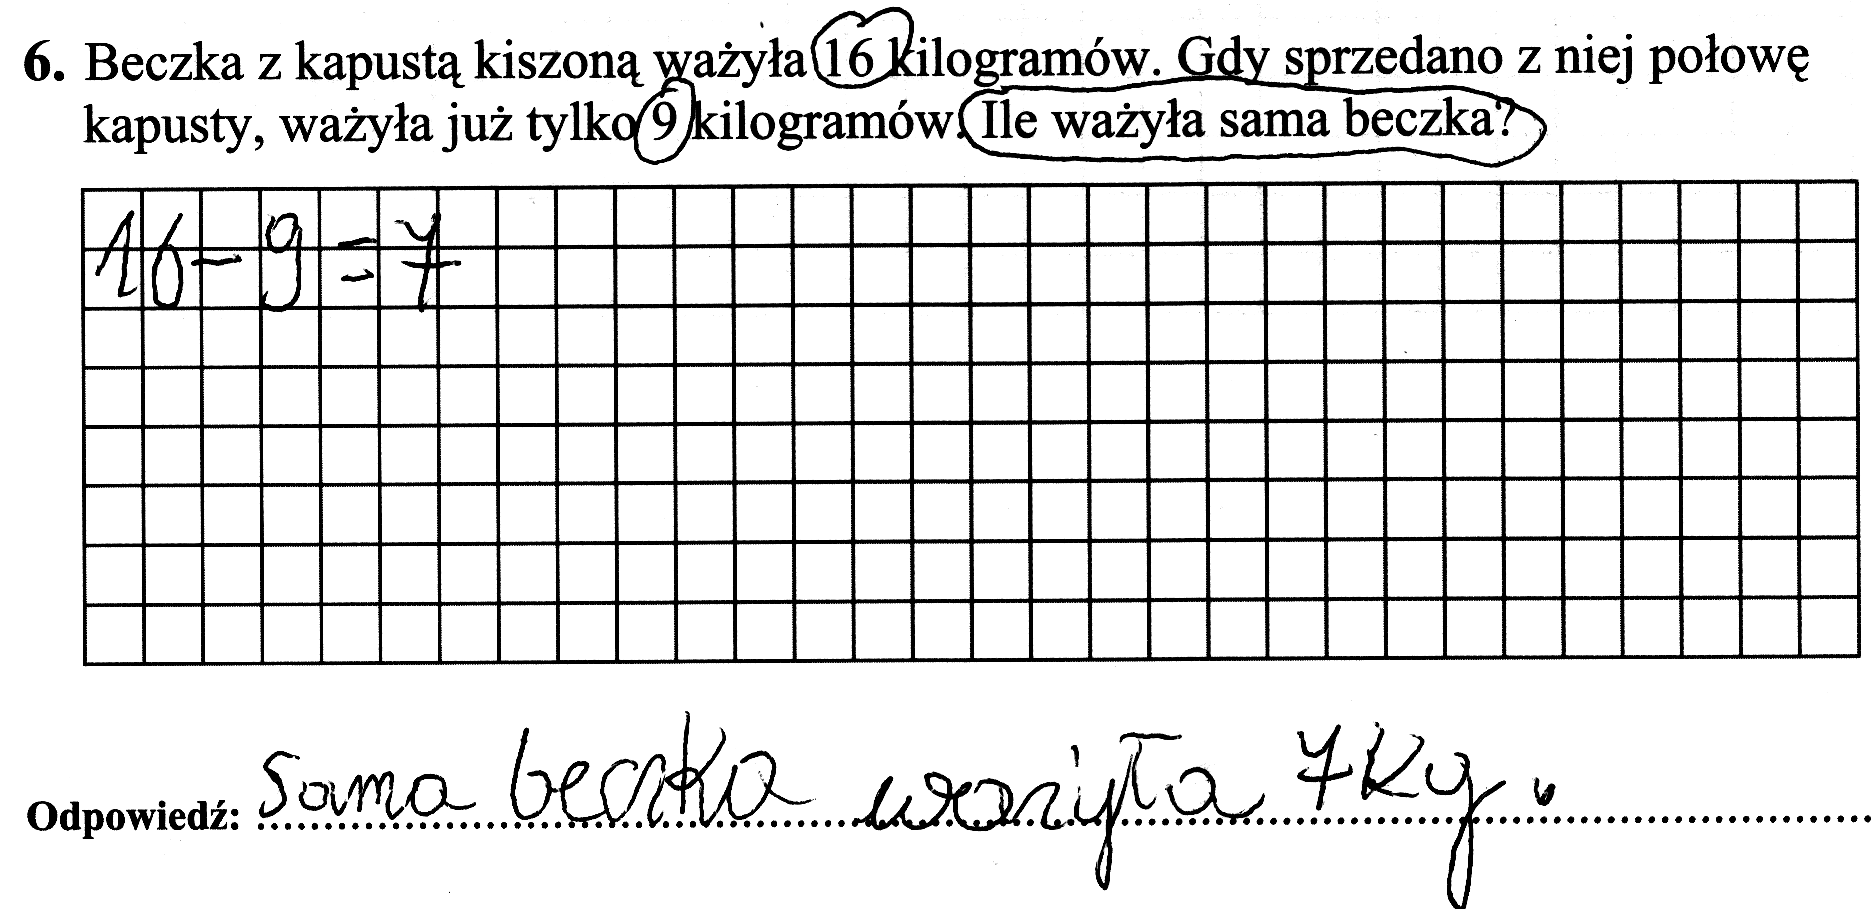 6. Beczka z kapustą kiszoną ważyła 16 kilogramów. Gdy sprzedano z niej połowę
kapusty, ważyła już tylko 9 kilogramów. Ile ważyła sama beczka?
16 - 9 = 7
Odpowiedź: Sama beczka ważyła 7 kg.